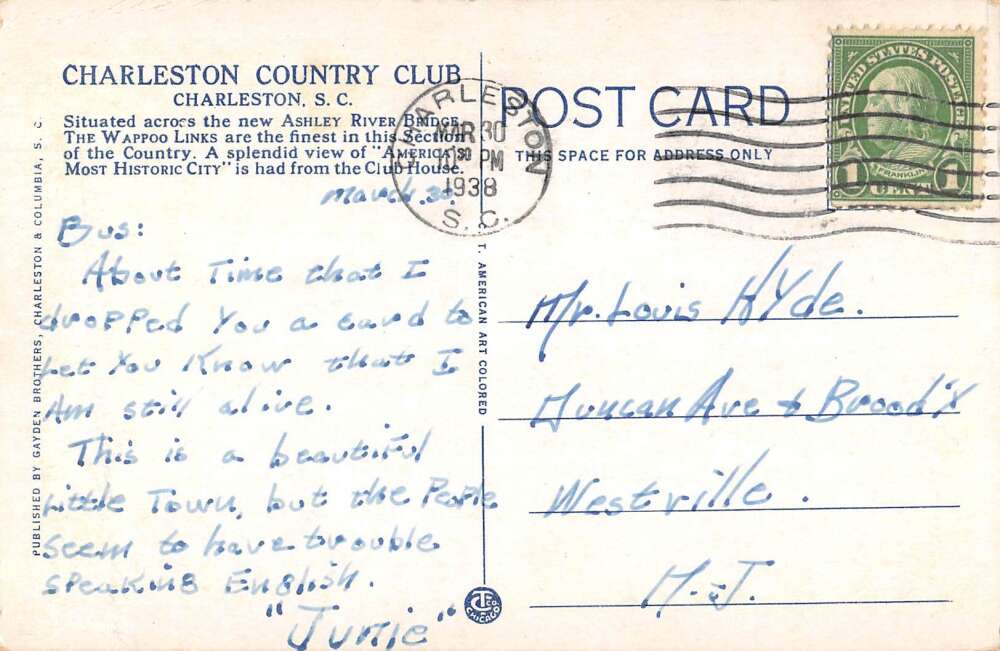 CHARLESTON COUNTRY CLUB
CHARLESTON, S. C.
Situated across the new ASHLEY RIVER BRIDGE.
THE WAPPOO LINKS are the finest in this Section
of the Country. A splendid view of "AMERICA'S
MOST HISTORIC CITY" is had from the Club House.
March 30.
Bus:
About Time that I
dropped You a card to
Let You Know that I
Am still alive.
This is a beautiful
Little Town, but the People
seem to have trouble
speaking English.
"Junie"
PUBLISHED BY GAYDEN BROTHERS, CHARLESTON & COLUMBIA, S. C.
C. T. AMERICAN ART COLORED
CHICAGO
CHARLESTON
MAR 30
PM
1938
S. C.
POST CARD
THIS SPACE FOR ADDRESS ONLY
UNITED STATES POSTAGE
FRANKLIN
1 1
Mr. Louis Hyde.
Duncan Ave &
Westville.
N. J.